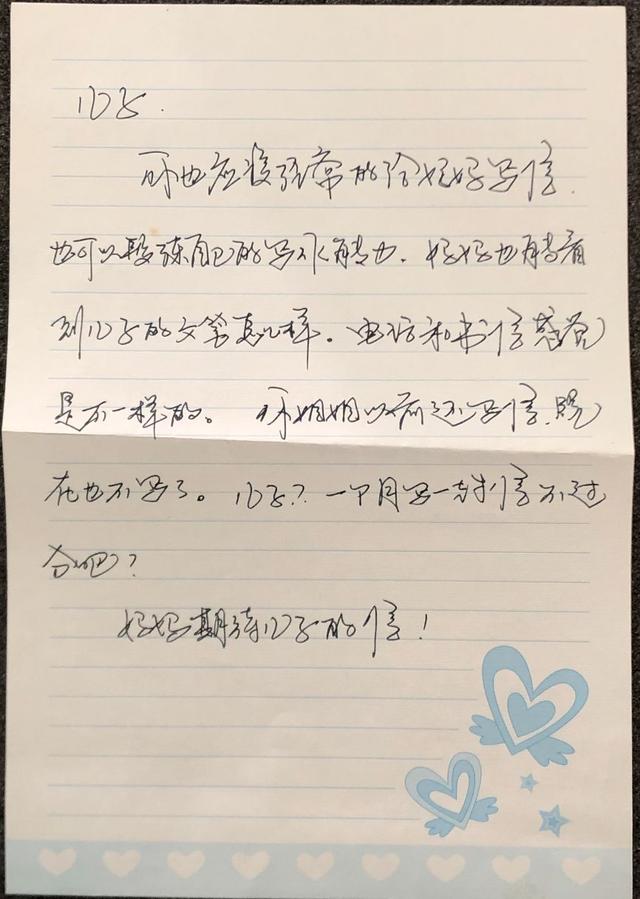 儿子.
你也应该经常的给妈妈写信.
也可以锻练自己的写作能力.妈妈也能看
到儿子的文笔怎么样。电话和书信感觉
是不一样的。你姐姐以前还写信.现
在也不写了。儿子?一个月写一封信不过
分吧?
妈妈期待儿子的信!